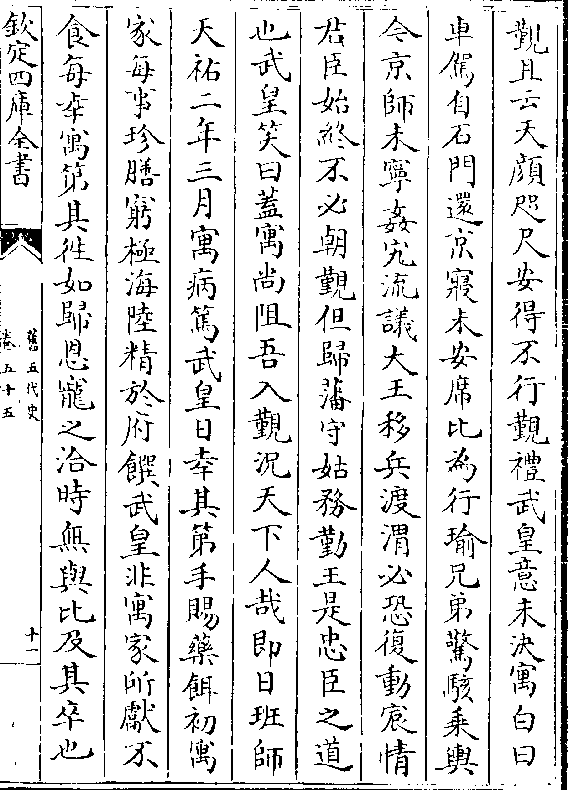 覲且云天顔咫尺安得不行覲禮武皇意未決寓白曰
車駕自石門還京寢未安席比為行瑜兄弟驚駭乘輿
今京師未寧姦宄流議大王移兵渡渭必恐復動宸情
君臣始終不必朝覲但歸藩守姑務勤王是忠臣之道
也武皇笑曰蓋寓尚阻吾入覲況天下人哉即日班師
天祐二年三月寓病篤武皇日幸其第手賜藥餌初寓
家每事珍膳窮極海陸精於府饌武皇非寓家所獻不
食每幸寓第其徃如歸恩寵之洽時無與比及其卒也
欽定四庫全書
舊五代史
卷五十五
十一